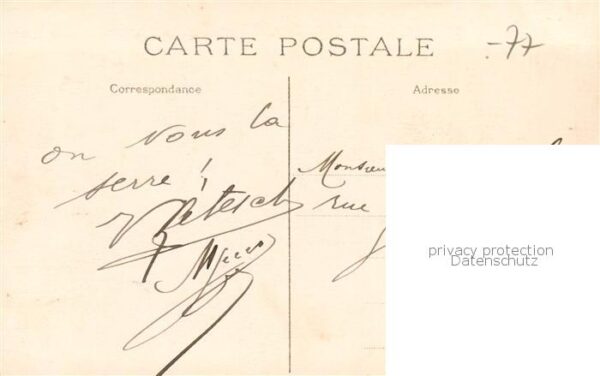 CARTE POSTALE
-77
Correspondance
Adresse
on vous la
serre !
Monsieur
rue
privacy protection
Datenschutz